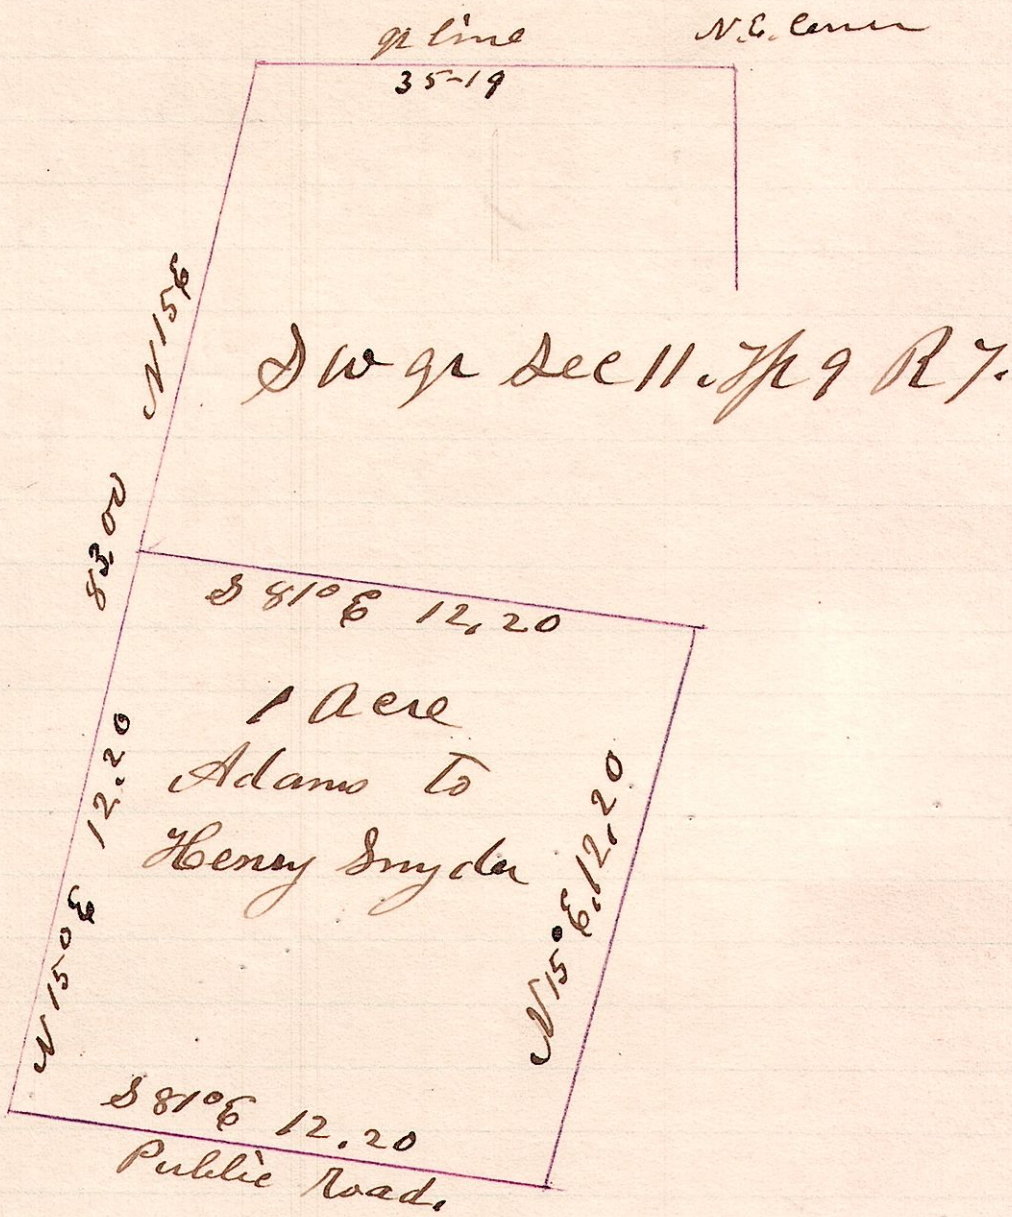 qr line
N.E. Corner
35-19
N 15 E
Sw qr Sec 11. Tp 9 R 7.
83,00
S 81° E 12,20
1 Acre
Adams to
Henry Snyder
N 15° E 12.20
N 15° E, 12,20
S 81° E 12.20
Public Road.